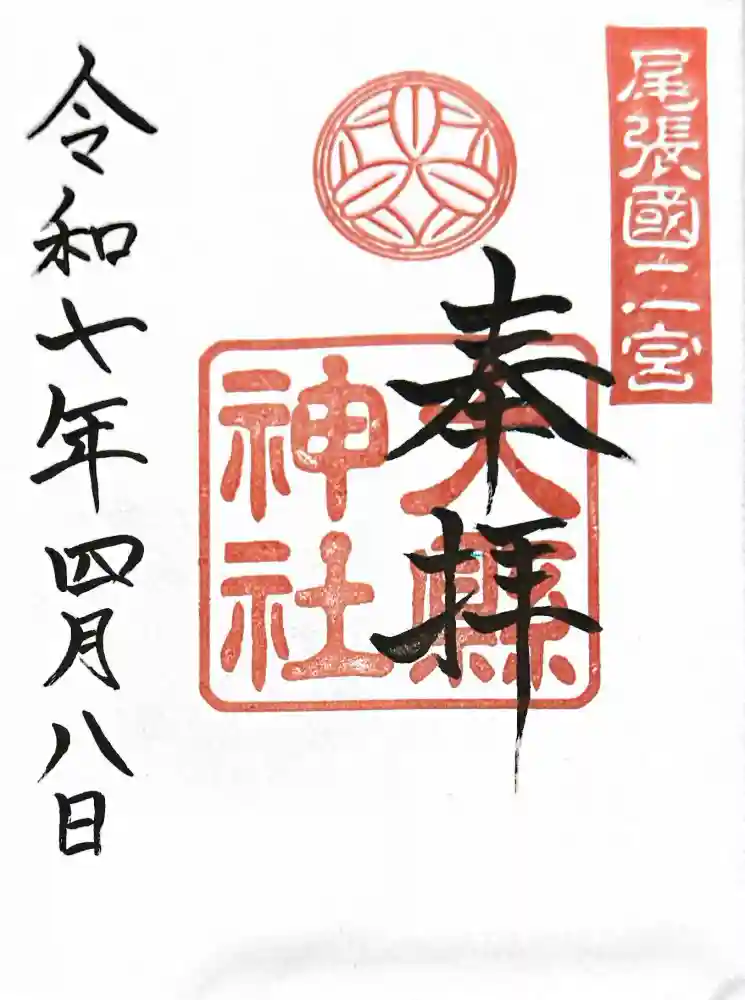 尾張國二宮
奉拝
大縣神社
令和七年四月八日